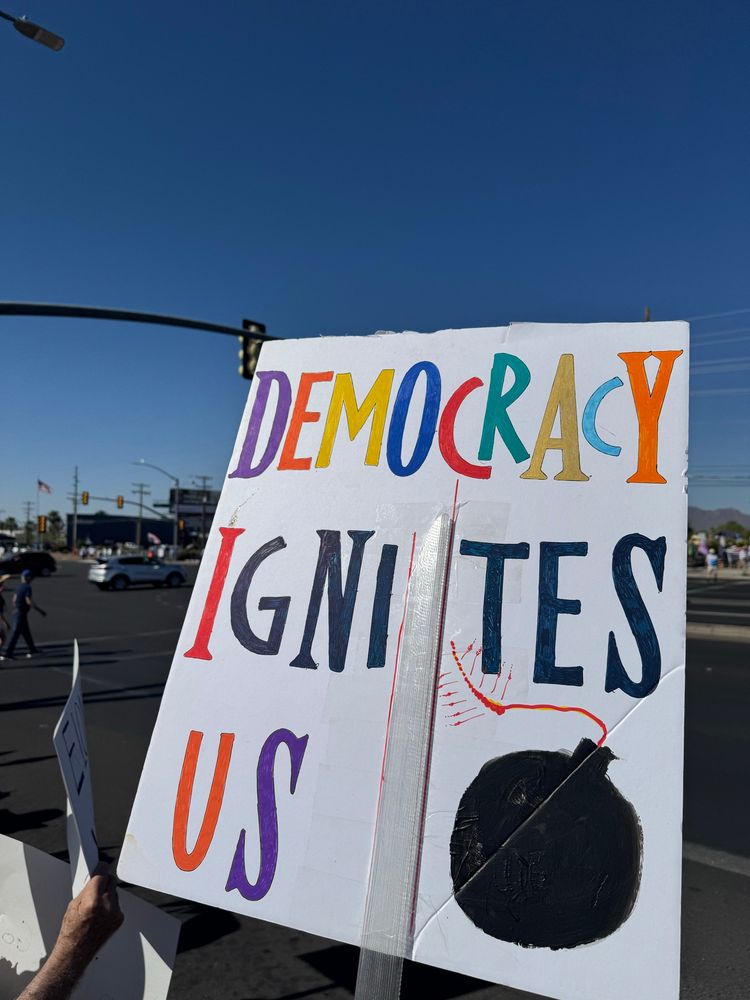 DEMOCRACY
IGNITES
US